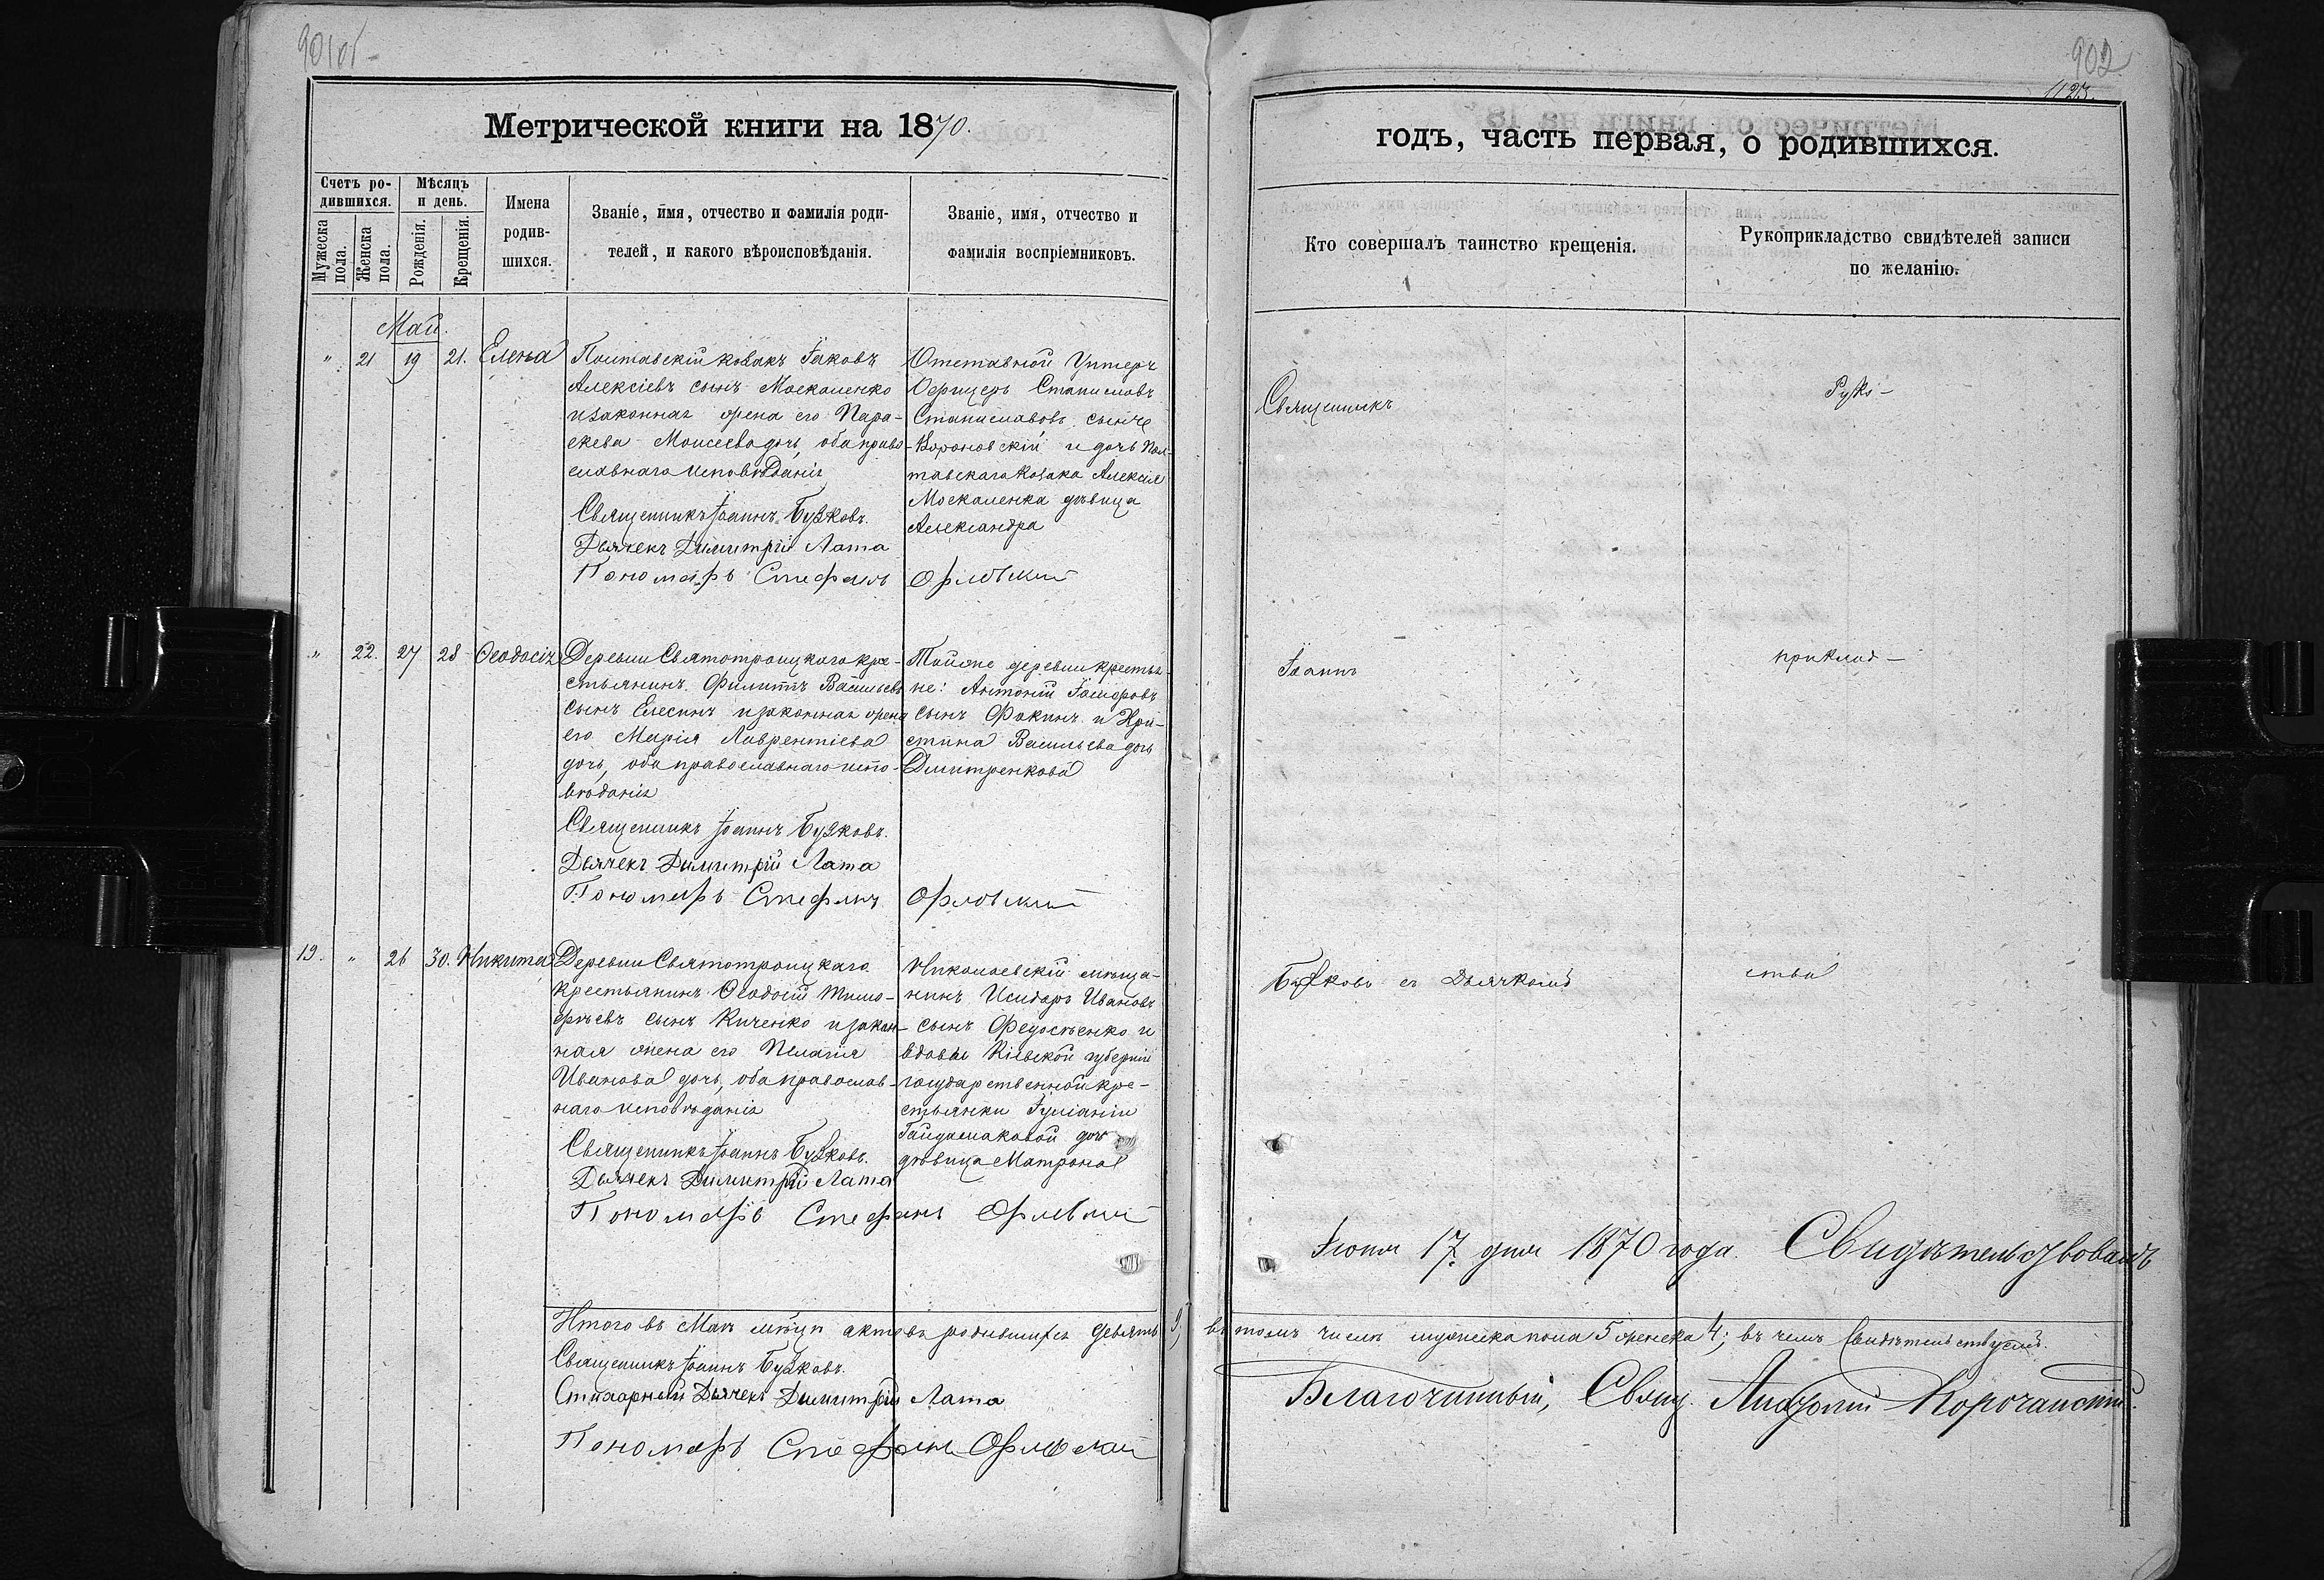 901об
902
1123.
Метрической книги на 1870.
годъ, часть первая, о родившихся.
Счетъ ро-
дившихся.
Мѣсяцъ
и день.
Мужеска
пола.
Женска
пола.
Рожденія.
Крещенія.
Имена
родив-
шихся.
Званіе, имя, отчество и фамилія роди-
телей, и какого вѣроисповѣданія.
Званіе, имя, отчество и
фамилія воспріемниковъ.
Кто совершалъ таинство крещенія.
Рукоприкладство свидѣтелей записи
по желанію.
Май.
" 21 19 21. Елена
Полтавскій козакъ Іаковъ
Алексіевъ сынъ Москаленко
и законная жена его Пара-
скева Моисеева дочь, оба право-
славнаго исповѣданія
Священникъ Іоаннъ Бужковъ.
Дьячекъ Димитрій Лата
Пономарь Стефанъ Орловскій
Отставной Унтеръ
Офицеръ Станиславъ
Станиславовъ сынъ
Вороновскій и дочь Пол-
тавскаго козака Алексія
Москаленка дѣвица
Александра
Священникъ
Руко-
" 22. 27 28 Ѳеодосія
Деревни Святотроицкаго кре-
стьянинъ Филиппъ Васильевъ
сынъ Елесинъ и законная жена
его Марія Лаврентіева
дочь, оба православнаго испо-
вѣданія
Священникъ Іоаннъ Бужковъ.
Дьячекъ Димитрій Лата
Пономарь Стефанъ Орловскій
Той же деревни крестья-
не: Антоній Ісидоровъ
сынъ Фокинъ и Хри-
стина Васильева дочь
Дмитренкова
Іоаннъ
приклад-
19. " 26 30. Никита
Деревни Святотроицкаго
крестьянинъ Ѳеодосій Тимо-
фѣевъ сынъ Киченко и закон-
ная жена его Пелагія
Иванова дочь, оба православ-
наго исповѣданія
Священникъ Іоаннъ Бужковъ.
Дьячекъ Димитрій Лата
Пономарь Стефанъ Орловскій
Николаевскій мѣща-
нинъ Исидоръ Ивановъ
сынъ Федосѣенко и
вдовы Кіевской губерніи
государственной кре-
стьянки Іуліаніи
Гайдамаковой дочь
дѣвица Матрона
Бужковъ съ Дьячкомъ
ства
Іюня 17 дня 1870 года. Свидѣтельствовалъ
Итого въ Маѣ мѣсяцѣ актовъ родившихся девять 9, въ томъ числѣ мужеска пола 5 женска 4; въ чемъ Свидѣтельствуемъ.
Священникъ Іоаннъ Бужковъ.
Стихарный Дьячекъ Димитрій Лата
Пономарь Стефанъ Орловскій
Благочинный, Свящ. Корочанскій.